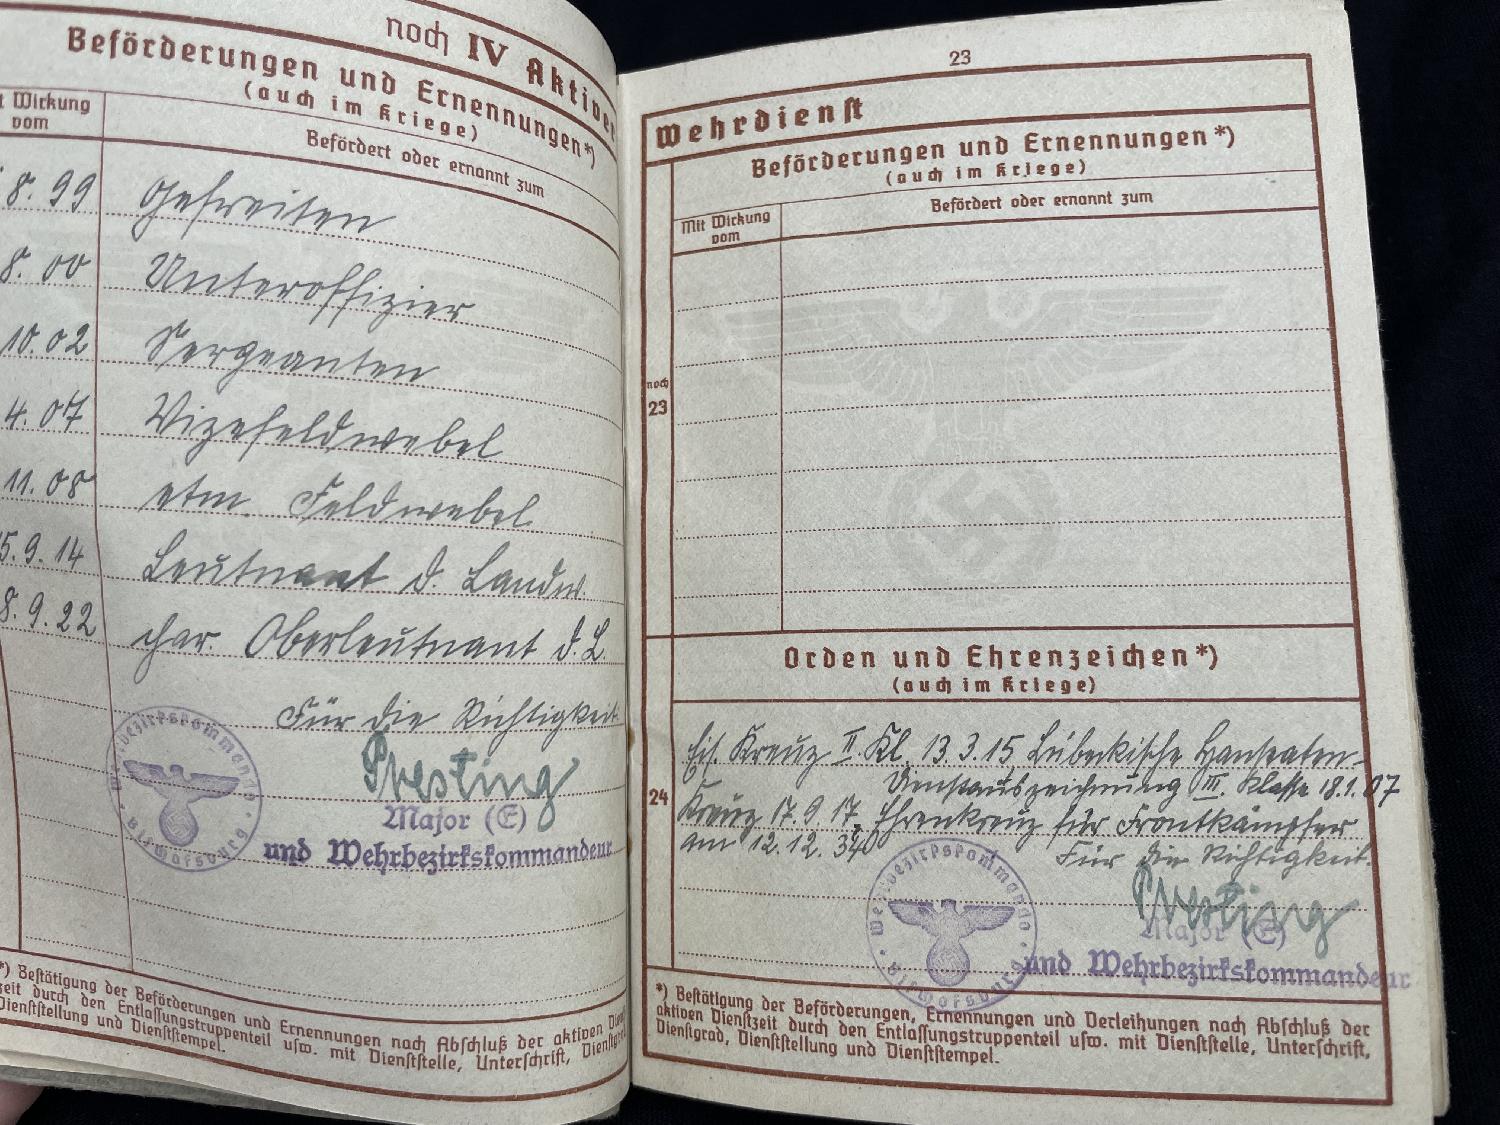 noch IV Aktiver
Beförderungen und Ernennungen*)
(auch im Kriege)
t Wirkung
vom
Befördert oder ernannt zum
8. 99 Gefreiten
8. 00 Unteroffizier
10. 02 Sergeanten
4. 07 Vizefeldwebel
11. 08 etm. Feldwebel
5. 9. 14 Leutnant d. Landw.
8. 9. 22 char. Oberleutnant d. L.
Für die Richtigkeit
Major (E)
und Wehrbezirkskommandeur
Wehrbezirkskommando
*) Bestätigung der Beförderungen und Ernennungen nach Abschluß der aktiven Dienst
zeit durch den Entlassungstruppenteil usw. mit Dienststelle, Unterschrift, Dienstgrad,
Dienststellung und Dienststempel.
23
Wehrdienst
Beförderungen und Ernennungen*)
(auch im Kriege)
Mit Wirkung
vom
Befördert oder ernannt zum
noch
23
Orden und Ehrenzeichen*)
(auch im Kriege)
24
Eis. Kreuz II. Kl. 13. 3. 15 Lübeckische Hanseaten-
Dienstauszeichnung III. Klasse 18. 1. 07
Kreuz 17. 9. 17, Ehrenkreuz für Frontkämpfer
am 12. 12. 34
Für die Richtigkeit.
Major (E)
und Wehrbezirkskommandeur
Wehrbezirkskommando
*) Bestätigung der Beförderungen, Ernennungen und Verleihungen nach Abschluß der
aktiven Dienstzeit durch den Entlassungstruppenteil usw. mit Dienststelle, Unterschrift,
Dienstgrad, Dienststellung und Dienststempel.